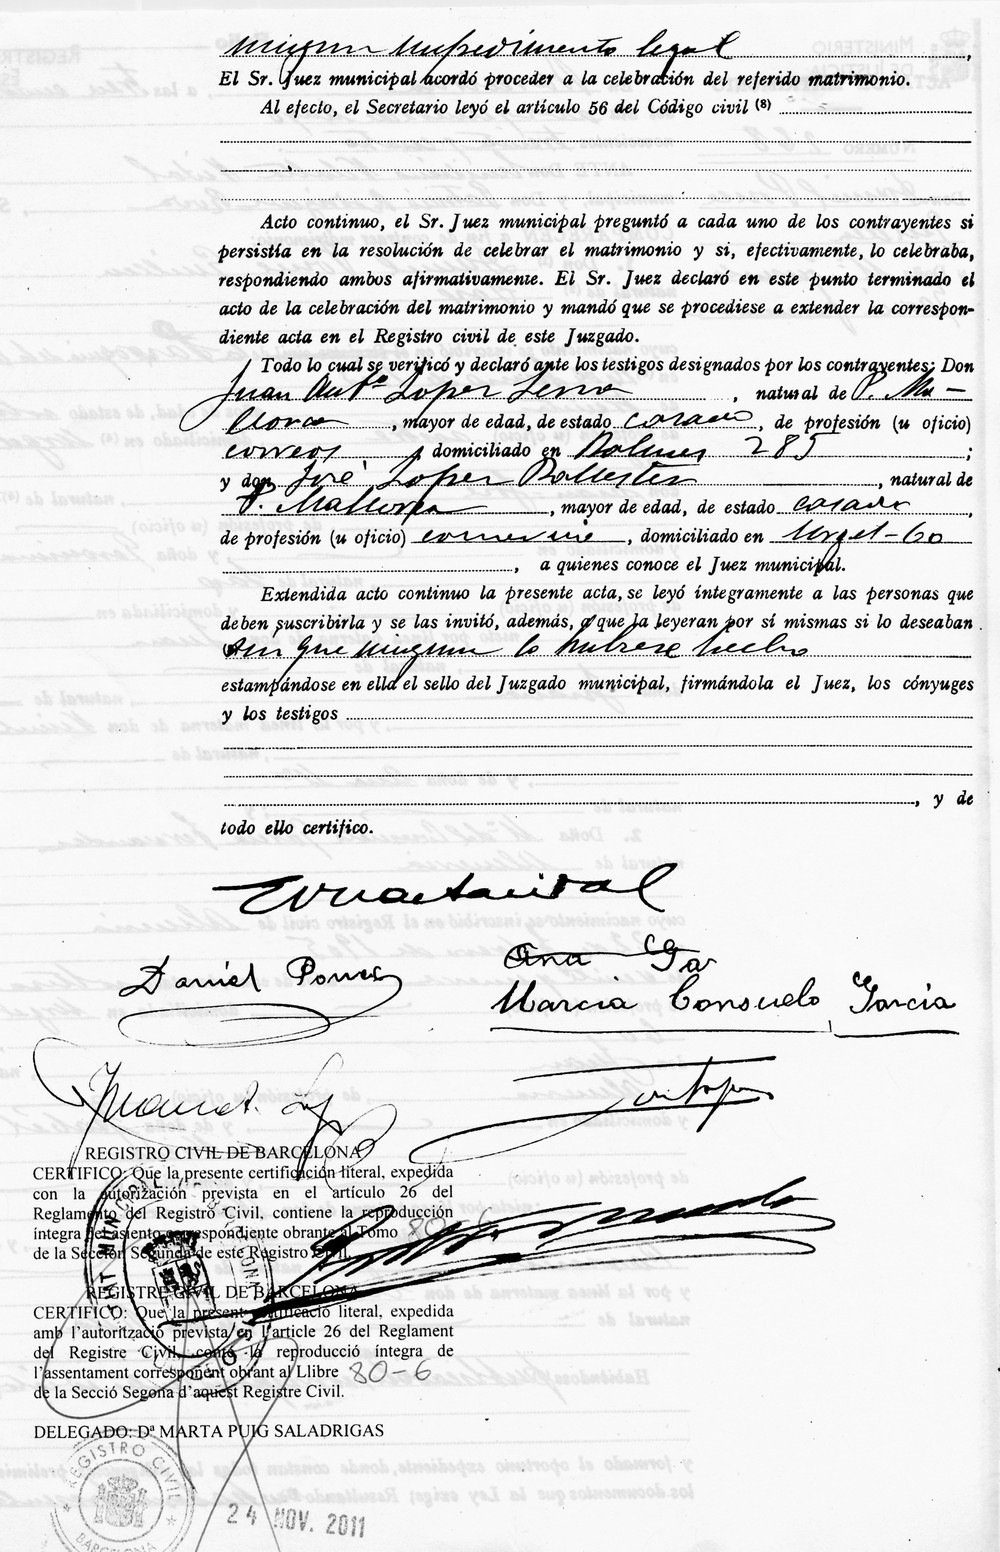 ningun impedimento legal,
El Sr. Juez municipal acordó proceder a la celebración del referido matrimonio.
Al efecto, el Secretario leyó el artículo 56 del Código civil (8)
Acto continuo, el Sr. Juez municipal preguntó a cada uno de los contrayentes si
persistía en la resolución de celebrar el matrimonio y si, efectivamente, lo celebraba,
respondiendo ambos afirmativamente. El Sr. Juez declaró en este punto terminado el
acto de la celebración del matrimonio y mandó que se procediese a extender la correspon-
diente acta en el Registro civil de este Juzgado.
Todo lo cual se verificó y declaró ante los testigos designados por los contrayentes; Don
Juan Antº Lopez Serra, natural de P. Ma-
llorca, mayor de edad, de estado casado, de profesión (u oficio)
correos, domiciliado en Balmes 285;
y don José Lopez Ballester, natural de
P. Mallorca, mayor de edad, de estado casado,
de profesión (u oficio) comercio, domiciliado en Urgel-60
, a quienes conoce el Juez municipal.
Extendida acto continuo la presente acta, se leyó íntegramente a las personas que
deben suscribirla y se las invitó, además, a que la leyeran por sí mismas si lo deseaban
sin que ninguno lo hubiese hecho
estampándose en ella el sello del Juzgado municipal, firmándola el Juez, los cónyuges
y los testigos
, y de
todo ello certifico.
Ana Ga
Daniel
Marcia Consuelo Garcia
REGISTRO CIVIL DE BARCELONA
CERTIFICO: Que la presente certificación literal, expedida
con la autorización prevista en el artículo 26 del
Reglamento del Registro Civil, contiene la reproducción
íntegra del asiento correspondiente obrante al Tomo 80-6
de la Sección Segunda de este Registro Civil.
REGISTRE CIVIL DE BARCELONA
CERTIFICO: Que la present certificació literal, expedida
amb l'autorització prevista en l'article 26 del Reglament
del Registre Civil, conté la reproducció íntegra de
l'assentament corresponent obrant al Llibre 80-6
de la Secció Segona d'aquest Registre Civil.
DELEGADO: Dª MARTA PUIG SALADRIGAS
REGISTRO CIVIL
BARCELONA
24 NOV. 2011